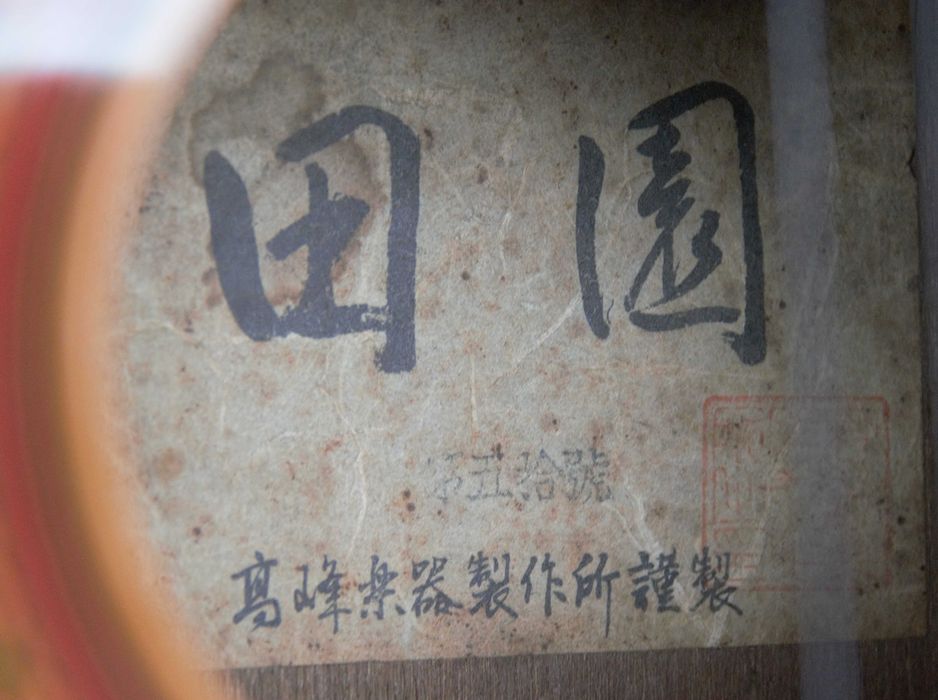 田園
第五拾號
高峰楽器製作所謹製